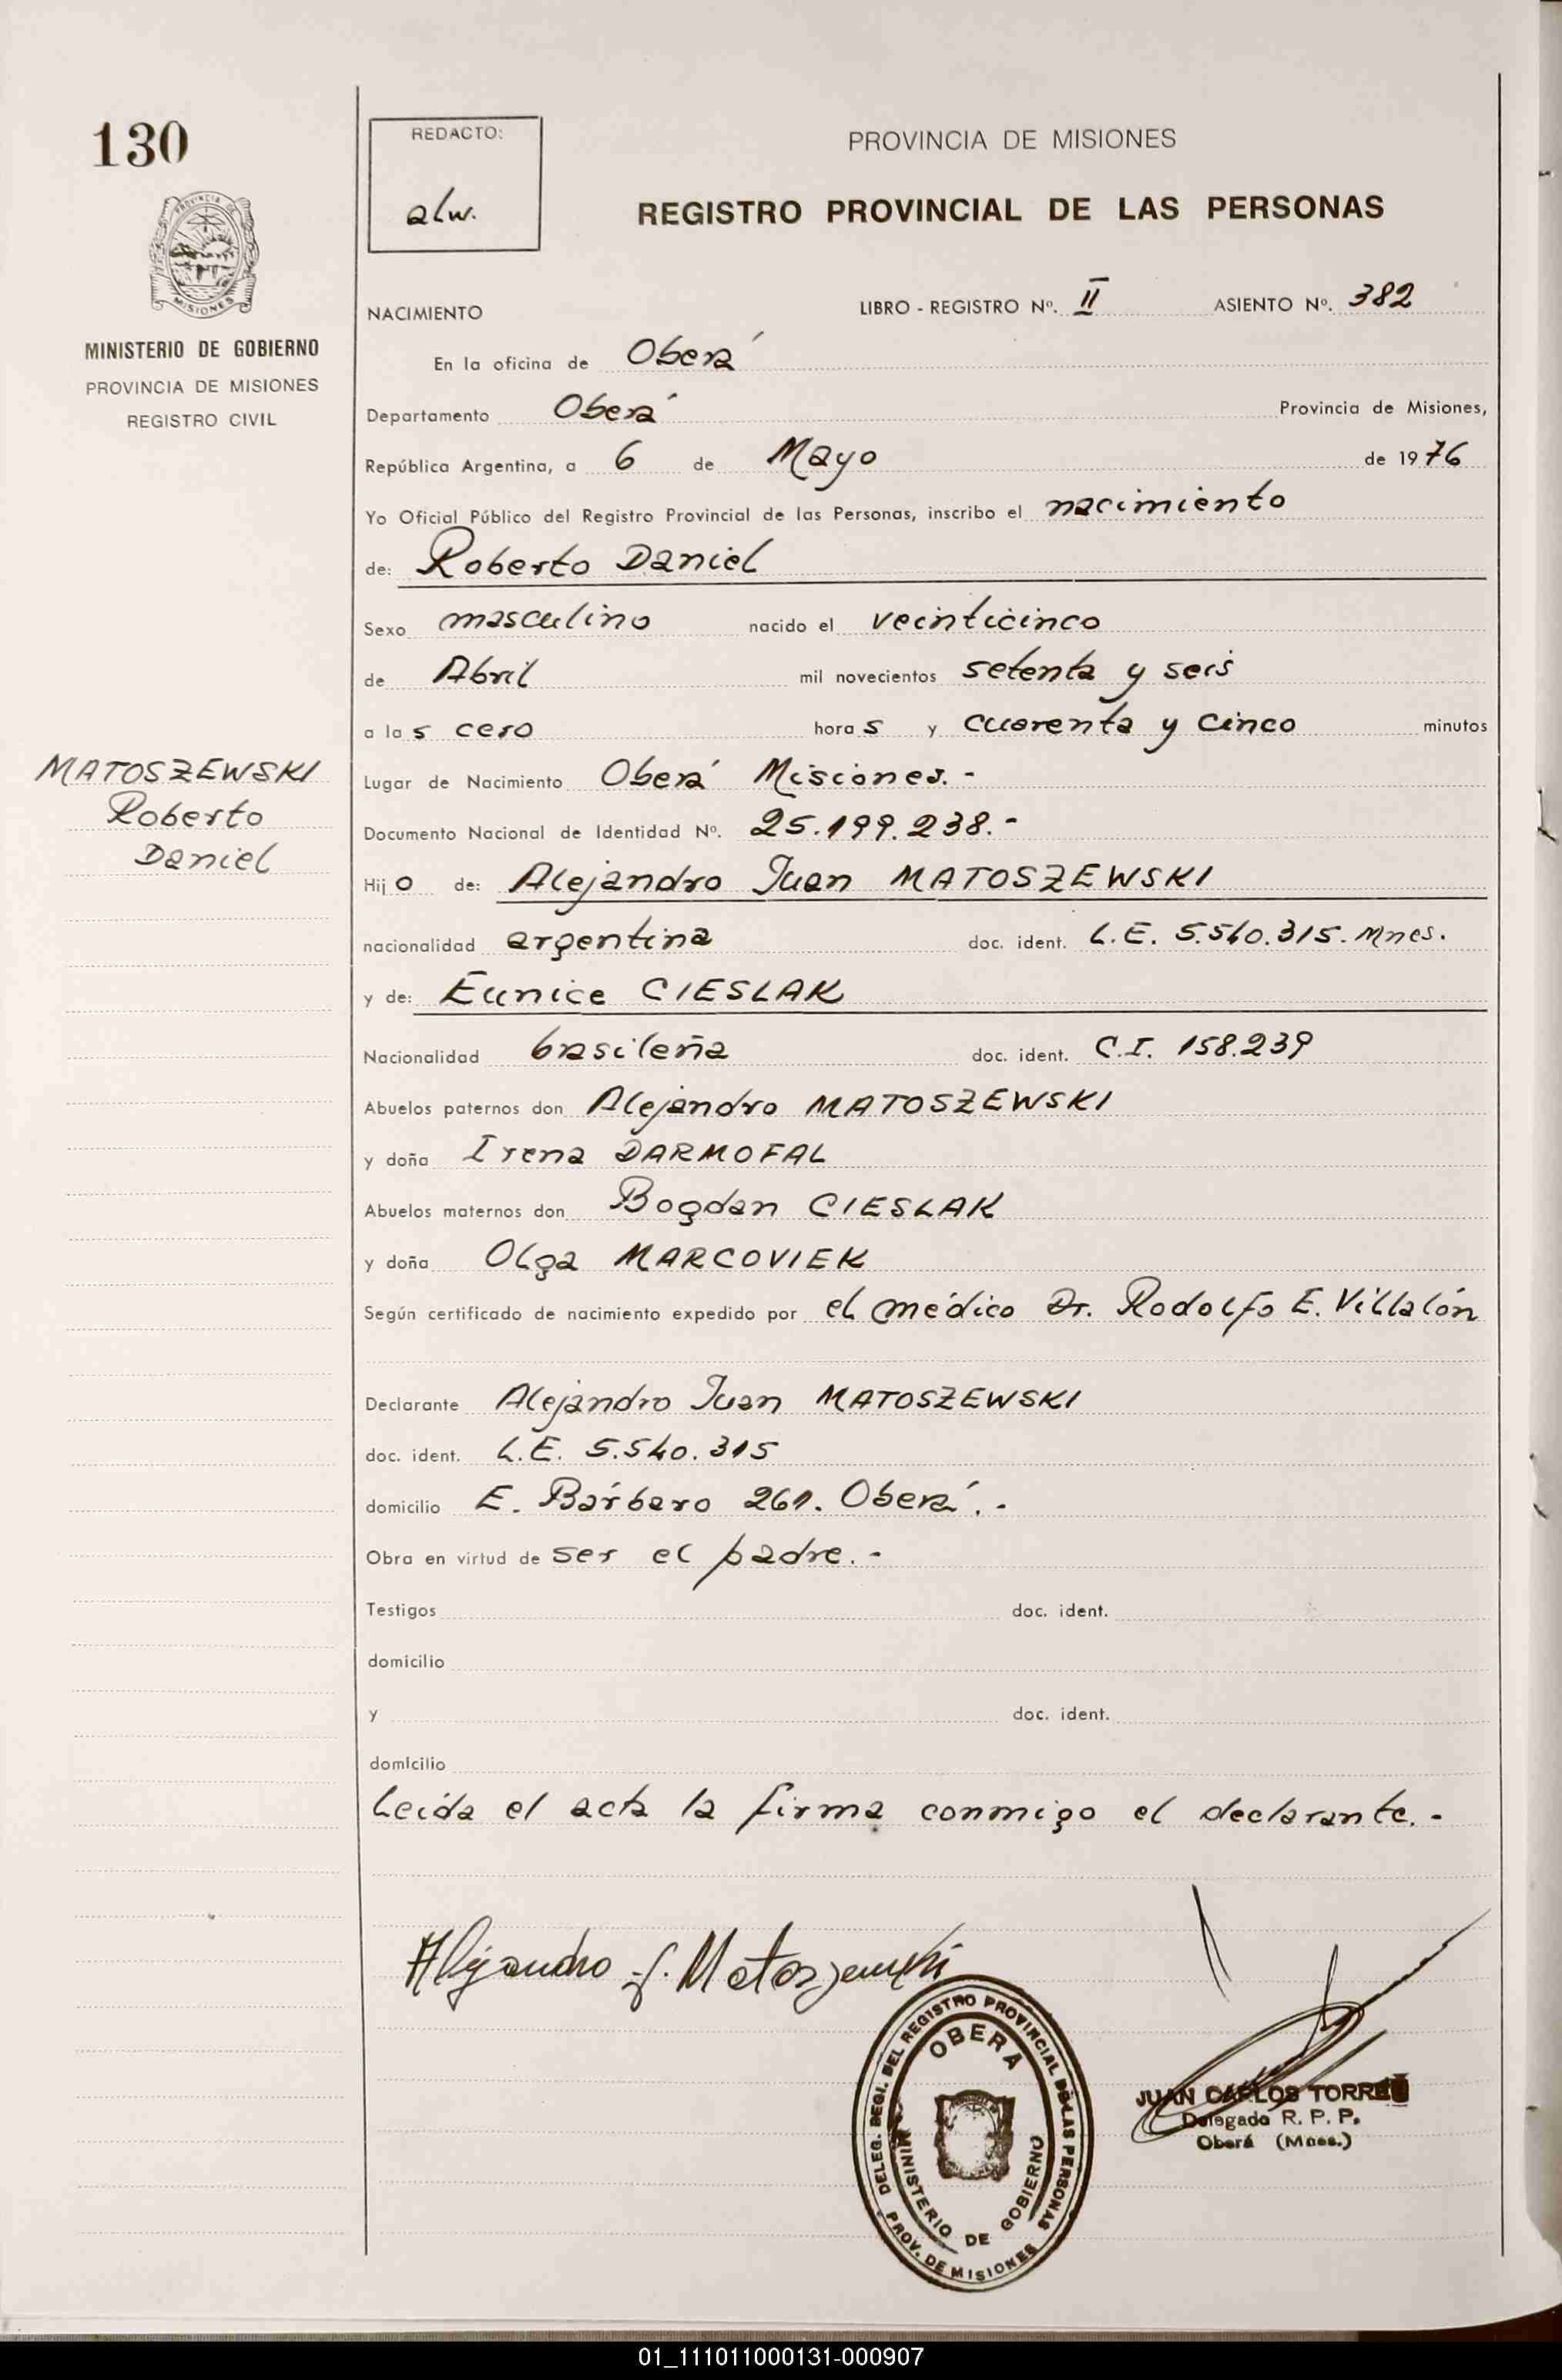 130
PROVINCIA DE
MISIONES
MINISTERIO DE GOBIERNO
PROVINCIA DE MISIONES
REGISTRO CIVIL
REDACTO:
alw.
PROVINCIA DE MISIONES
REGISTRO PROVINCIAL DE LAS PERSONAS
NACIMIENTO LIBRO - REGISTRO Nº. II ASIENTO Nº. 382
En la oficina de Oberá
Departamento Oberá Provincia de Misiones,
República Argentina, a 6 de Mayo de 1976
Yo Oficial Público del Registro Provincial de las Personas, inscribo el nacimiento
de: Roberto Daniel
Sexo masculino nacido el veinticinco
de Abril mil novecientos setenta y seis
a las cero horas y cuarenta y cinco minutos
MATOSZEWSKI
Roberto
Daniel
Lugar de Nacimiento Oberá Misiones.-
Documento Nacional de Identidad Nº. 25.199.238.-
Hijo de: Alejandro Juan MATOSZEWSKI
nacionalidad argentina doc. ident. L.E. 5.540.315. Mnes.
y de: Eunice CIESLAK
Nacionalidad brasileña doc. ident. C.I. 158.239
Abuelos paternos don Alejandro MATOSZEWSKI
y doña Irena DARMOFAL
Abuelos maternos don Bogdan CIESLAK
y doña Olga MARCOVIEK
Según certificado de nacimiento expedido por el médico Dr. Rodolfo E. Villalón
Declarante Alejandro Juan MATOSZEWSKI
doc. ident. L.E. 5.540.315
domicilio E. Bárbaro 261. Oberá.-
Obra en virtud de ser el padre.-
Testigos doc. ident.
domicilio
y doc. ident.
domicilio
Leída el acta la firma conmigo el declarante.-
Alejandro J. Matoszewski
DELEG. REGI. DEL REGISTRO PROVINCIAL DE LAS PERSONAS
OBERA
MINISTERIO DE GOBIERNO
PROV. DE MISIONES
JUAN CARLOS TORRES
Delegado R. P. P.
Oberá (Mnes.)
01_111011000131-000907